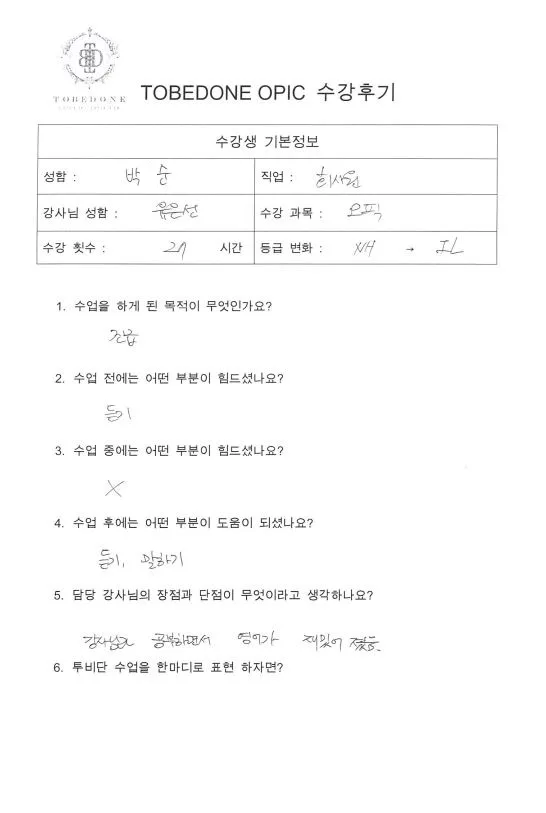 TOBEDONE
TOBEDONE OPIC 수강후기
수강생 기본정보
성함 : 박 순 직업 : 회사원
강사님 성함 : 유은선 수강 과목 : 오픽
수강 횟수 : 시간 등급 변화 : NH → IL
1. 수업을 하게 된 목적이 무엇인가요?
진급
2. 수업 전에는 어떤 부분이 힘드셨나요?
듣기
3. 수업 중에는 어떤 부분이 힘드셨나요?
X
4. 수업 후에는 어떤 부분이 도움이 되셨나요?
듣기, 말하기
5. 담당 강사님의 장점과 단점이 무엇이라고 생각하나요?
강사님과 공부하면서 영어가 재밌어 졌음.
6. 투비단 수업을 한마디로 표현 하자면?